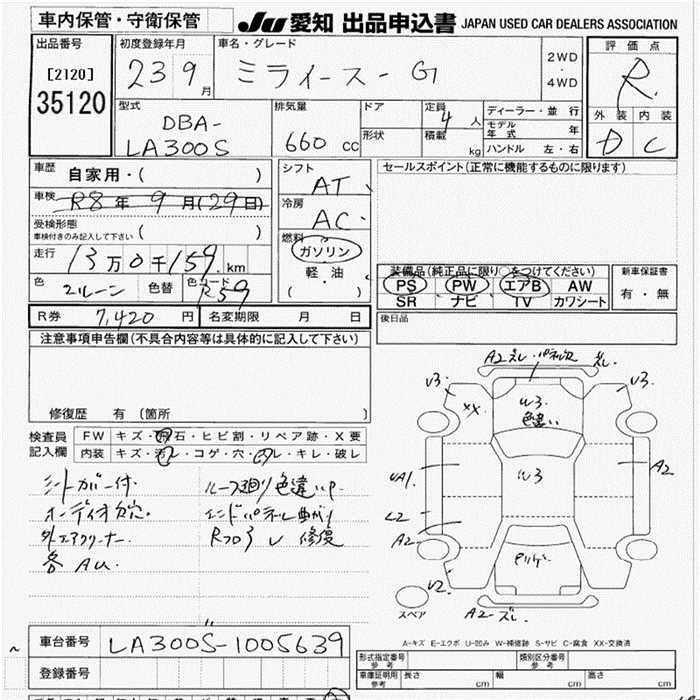 車内保管・守衛保管
JU 愛知 出品申込書 JAPAN USED CAR DEALERS ASSOCIATION
出品番号
[2120]
35120
初度登録年月
23 9月
車名・グレード
ミライース-G
2WD
・
4WD
評価点
R
外装 内装
D C
型式
DBA-
LA300S
排気量
660 cc
ドア
形状
定員 4 人
積載 kg
ディーラー・並行
モデル年式 年
ハンドル 左・右
車歴 自家用・( )
車検 R8年 9月(29日)
受検形態
車検付きのみ記入して下さい ( )
走行 13万0千159 km
色 色替 色コード R59
シフト
AT
冷房
AC
燃料
ガソリン
軽・油
( )
セールスポイント(正常に機能するものに限ります)
装備品(純正品に限り○をつけてください)
PS PW エアB AW
SR ナビ TV カワシート
新車保証書
有・無
R券 7,420 円 名変期限 月 日
後日品
注意事項申告欄(不具合内容等は具体的に記入して下さい)
修復歴 有 (箇所 )
検査員記入欄
FW キズ・飛石・ヒビ割・リペア跡・X要
内装 キズ・汚レ・コゲ・穴・スレ・キレ・破レ
シートカバー付
オーディオ欠穴
外エアクリーナー
各AU.
ルーフ廻り色違いP.
エンドパネル曲がり
Rフロア 修復
A2 ズレ
ズレ.
V3.
XX.
W3.
色違い
V3.
UA1.
W3
A2
L2
A2
V2.
スペア
A2 ズレ.
A-キズ E-エクボ U-凹み W-補修跡 S-サビ C-腐食 XX-交換済
車台番号 LA300S-1005639
登録番号
形式指定番号 参考
類別区分番号 参考
車庫証明用 参考
長さ cm 幅 cm 高さ cm